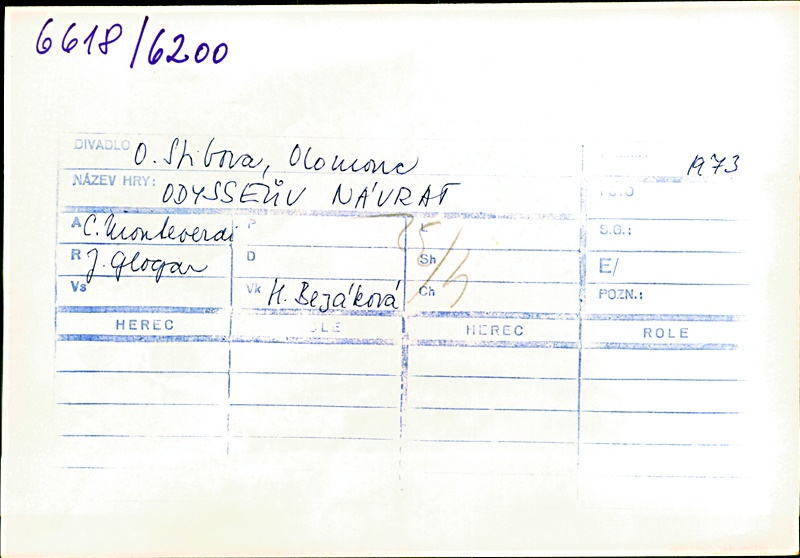 6618/6200
DIVADLO O. Stibora, Olomouc 1973
NÁZEV HRY: ODYSSEŮV NÁVRAT FOTO
A C. Monteverdi P S.G.:
R J. Glogar D Sh E/
Vs Vk H. Bezáková Ch POZN.:
HEREC ROLE HEREC ROLE